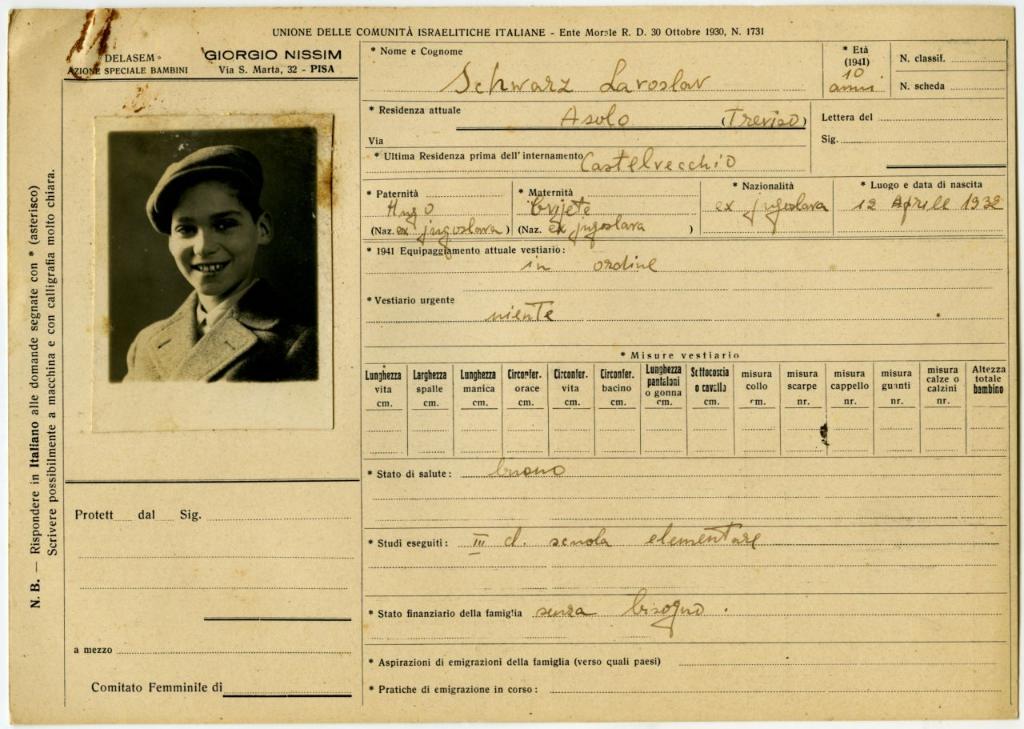 UNIONE DELLE COMUNITÀ ISRAELITICHE ITALIANE - Ente Morale R. D. 30 Ottobre 1930, N. 1731
DELASEM
AZIONE SPECIALE BAMBINI
GIORGIO NISSIM
Via S. Marta, 32 - PISA
N. B. — Rispondere in Italiano alle domande segnate con * (asterisco)
Scrivere possibilmente a macchina e con calligrafia molto chiara.
* Nome e Cognome
Schwarz Laroslav
* Età
(1941)
10
anni
N. classif.
N. scheda
* Residenza attuale
Asolo (Treviso)
Via
Lettera del
Sig.
* Ultima Residenza prima dell'internamento Castelvecchio
* Paternità
Hugo
(Naz. ex jugoslava)
* Maternità
(Naz. ex jugoslava)
* Nazionalità
ex jugoslava
* Luogo e data di nascita
12 Aprile 1932
* 1941 Equipaggiamento attuale vestiario:
in ordine
* Vestiario urgente
niente
* Misure vestiario
Lunghezza vita cm.
Larghezza spalle cm.
Lunghezza manica cm.
Circonfer. orace cm.
Circonfer. vita cm.
Circonfer. bacino cm.
Lunghezza pantaloni o gonna cm.
Sottocoscia o cavallo cm.
misura collo cm.
misura scarpe nr.
misura cappello nr.
misura guanti nr.
misura calze o calzini nr.
Altezza totale bambino
* Stato di salute: buono
* Studi eseguiti: III cl. scuola elementare
* Stato finanziario della famiglia senza bisogno.
* Aspirazioni di emigrazioni della famiglia (verso quali paesi)
* Pratiche di emigrazione in corso:
Protett dal Sig.
a mezzo
Comitato Femminile di